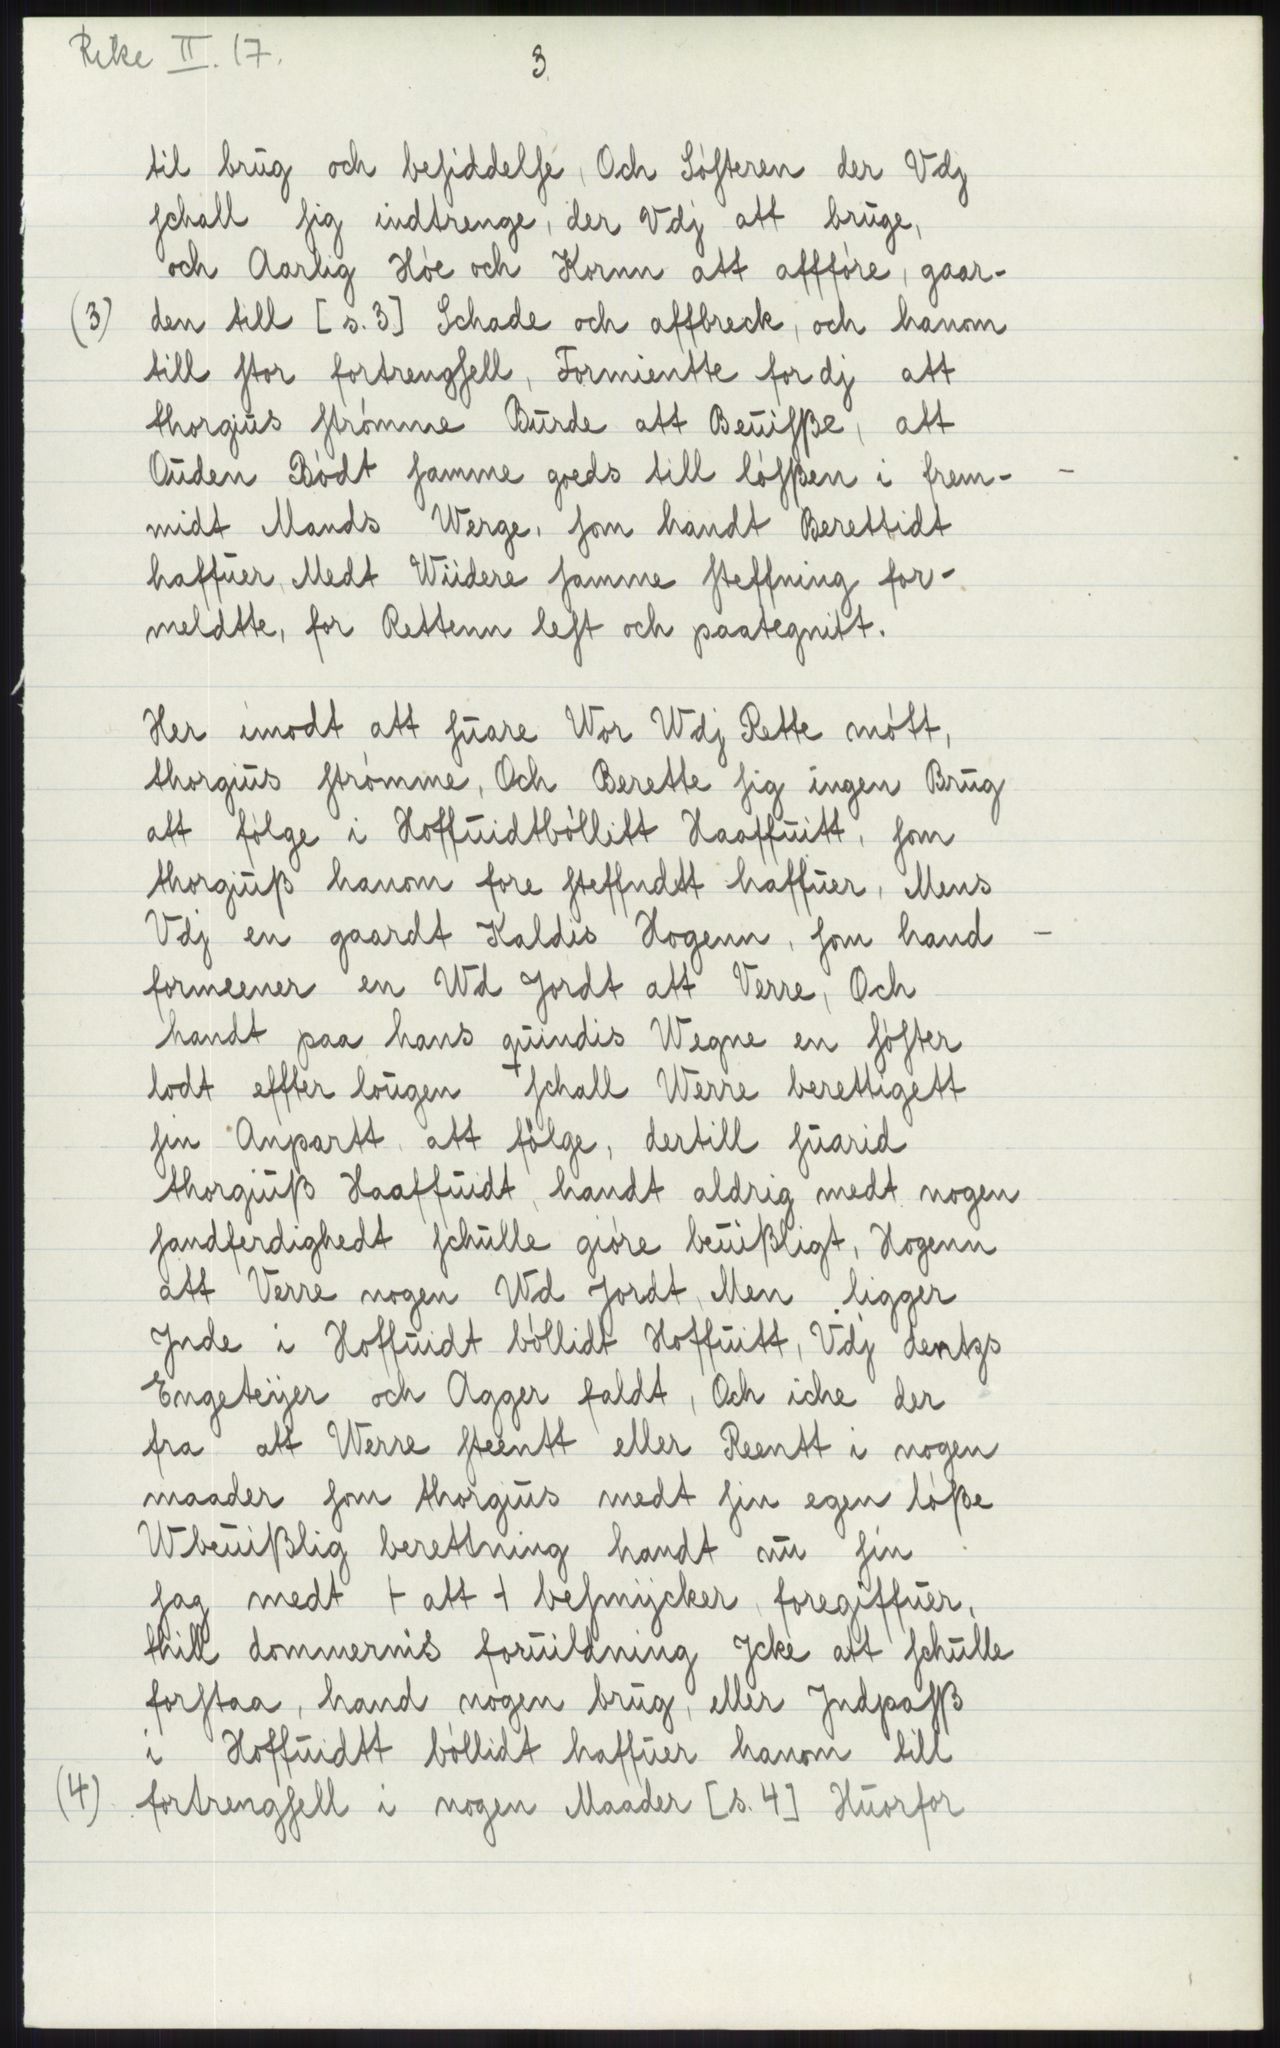 Rike II. 17.
3
til brug och besiddelse, Och Söfteren der Vdj
schall sig indtrenge, der Vdj att bruge,
och Aarlig Höe och Kornn att affföre, gaar-
(3) den till [s. 3] Schade och affbreck, och hanom
till stor fortrengsell, Formientte fordj att
thorgius strömme Burde att Beuisße, att
Ouden Bödt samme goeds till lösßen i frem-
midt Mands Werge, som handt Berettidt
haffuer, Medt Wiidere samme steffning for-
meldtte, for Rettenn lest och paategnitt.
Her imodt att suare Wor Wdj Rette mött,
thorgius strömme, Och Berette sig ingen Brug
att følge i Hoffuidtböllitt Haaffuitt, som
thorgiuß hanom fore steffndtt haffuer, Mens
Vdj en gaardt Kaldis Hogenn, som hand
formeener en Wd Jordt att Verre, Och
handt paa hans quindis Wegne en söster
lodt effter lougen + schall Werre berettigett
sin Anpartt att følge, dertill suarid
thorgiuß Haaffuidt, handt aldrig medt nogen
sandferdighedt schulle giöre beuißligt, Hogenn
att Verre nogen Wd Jordt, Men ligger
Jnde i Hoffuidt böllidt Hoffuitt, Vdj dentzs
Engeteijer och Agger faldt, Och iche der
fra att Werre steentt eller Reentt i nogen
maader som thorgius medt sin egen löße
Wbeuißlig berettning handt nu sin
sag medt + att + besmijcker, foregiffuer,
thill dommernis foruildning Jcke att schulle
forstaa, hand nogen brug, eller Jndpasß
i Hoffuidtt böllidt haffuer hanom till
(4) fortrengsell i nogen Maader [s. 4] Huorfor